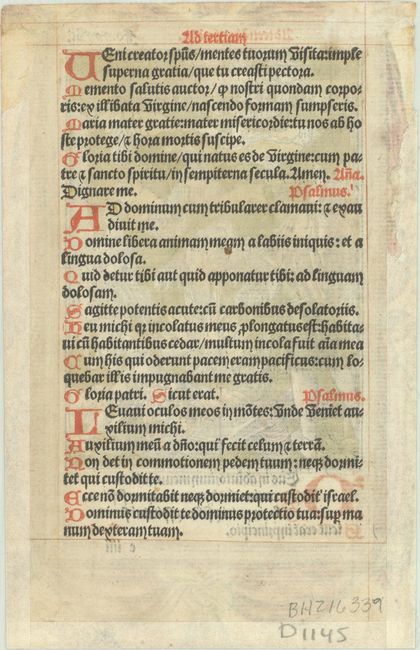 Ad tertiam
VEni creator spūs/mentes tuorum visita: imple
superna gratia/que tu creasti pectora.
Memento salutis auctor/ ꝙ nostri quondam corpo-
ris: ex illibata Virgine/nascendo formam sumpseris.
Maria mater gratie: mater misericordie: tu nos ab ho
ste protege/⁊ hora mortis suscipe.
Gloria tibi domine/qui natus es de Virgine: cum pa-
tre ⁊ sancto spiritu/in sempiterna secula. Amen. Aña.
Dignare me. Psalmus.
AD dominum cum tribularer clamavi: ⁊ exau
divit me.
Domine libera animam meam a labiis iniquis: et a
lingua dolosa.
Quid detur tibi aut quid apponatur tibi: ad linguam
dolosam.
Sagitte potentis acute: cū carbonibus desolatoriis.
Heu michi qr incolatus meus ꝓlongatus est: habita-
vi cū habitantibus cedar/multum incola fuit aīa mea
Cum his qui oderunt pacem eram pacificus: cum lo-
quebar illis impugnabant me gratis.
Gloria patri. Sicut erat. Psalmus.
LEvavi oculos meos in mōtes: Vnde Veniet au-
xilium michi.
Auxilium meū a dño: qui fecit celum ⁊ terrā.
Non det in commotionem pedem tuum: neqꝫ dormi-
tet qui custodit te.
Ecce nō dormitabit neqꝫ dormiet: qui custodit israel.
Dominus custodit te dominus protectio tua: suꝑ ma
num dexteram tuam.
BHZ16339
D1145